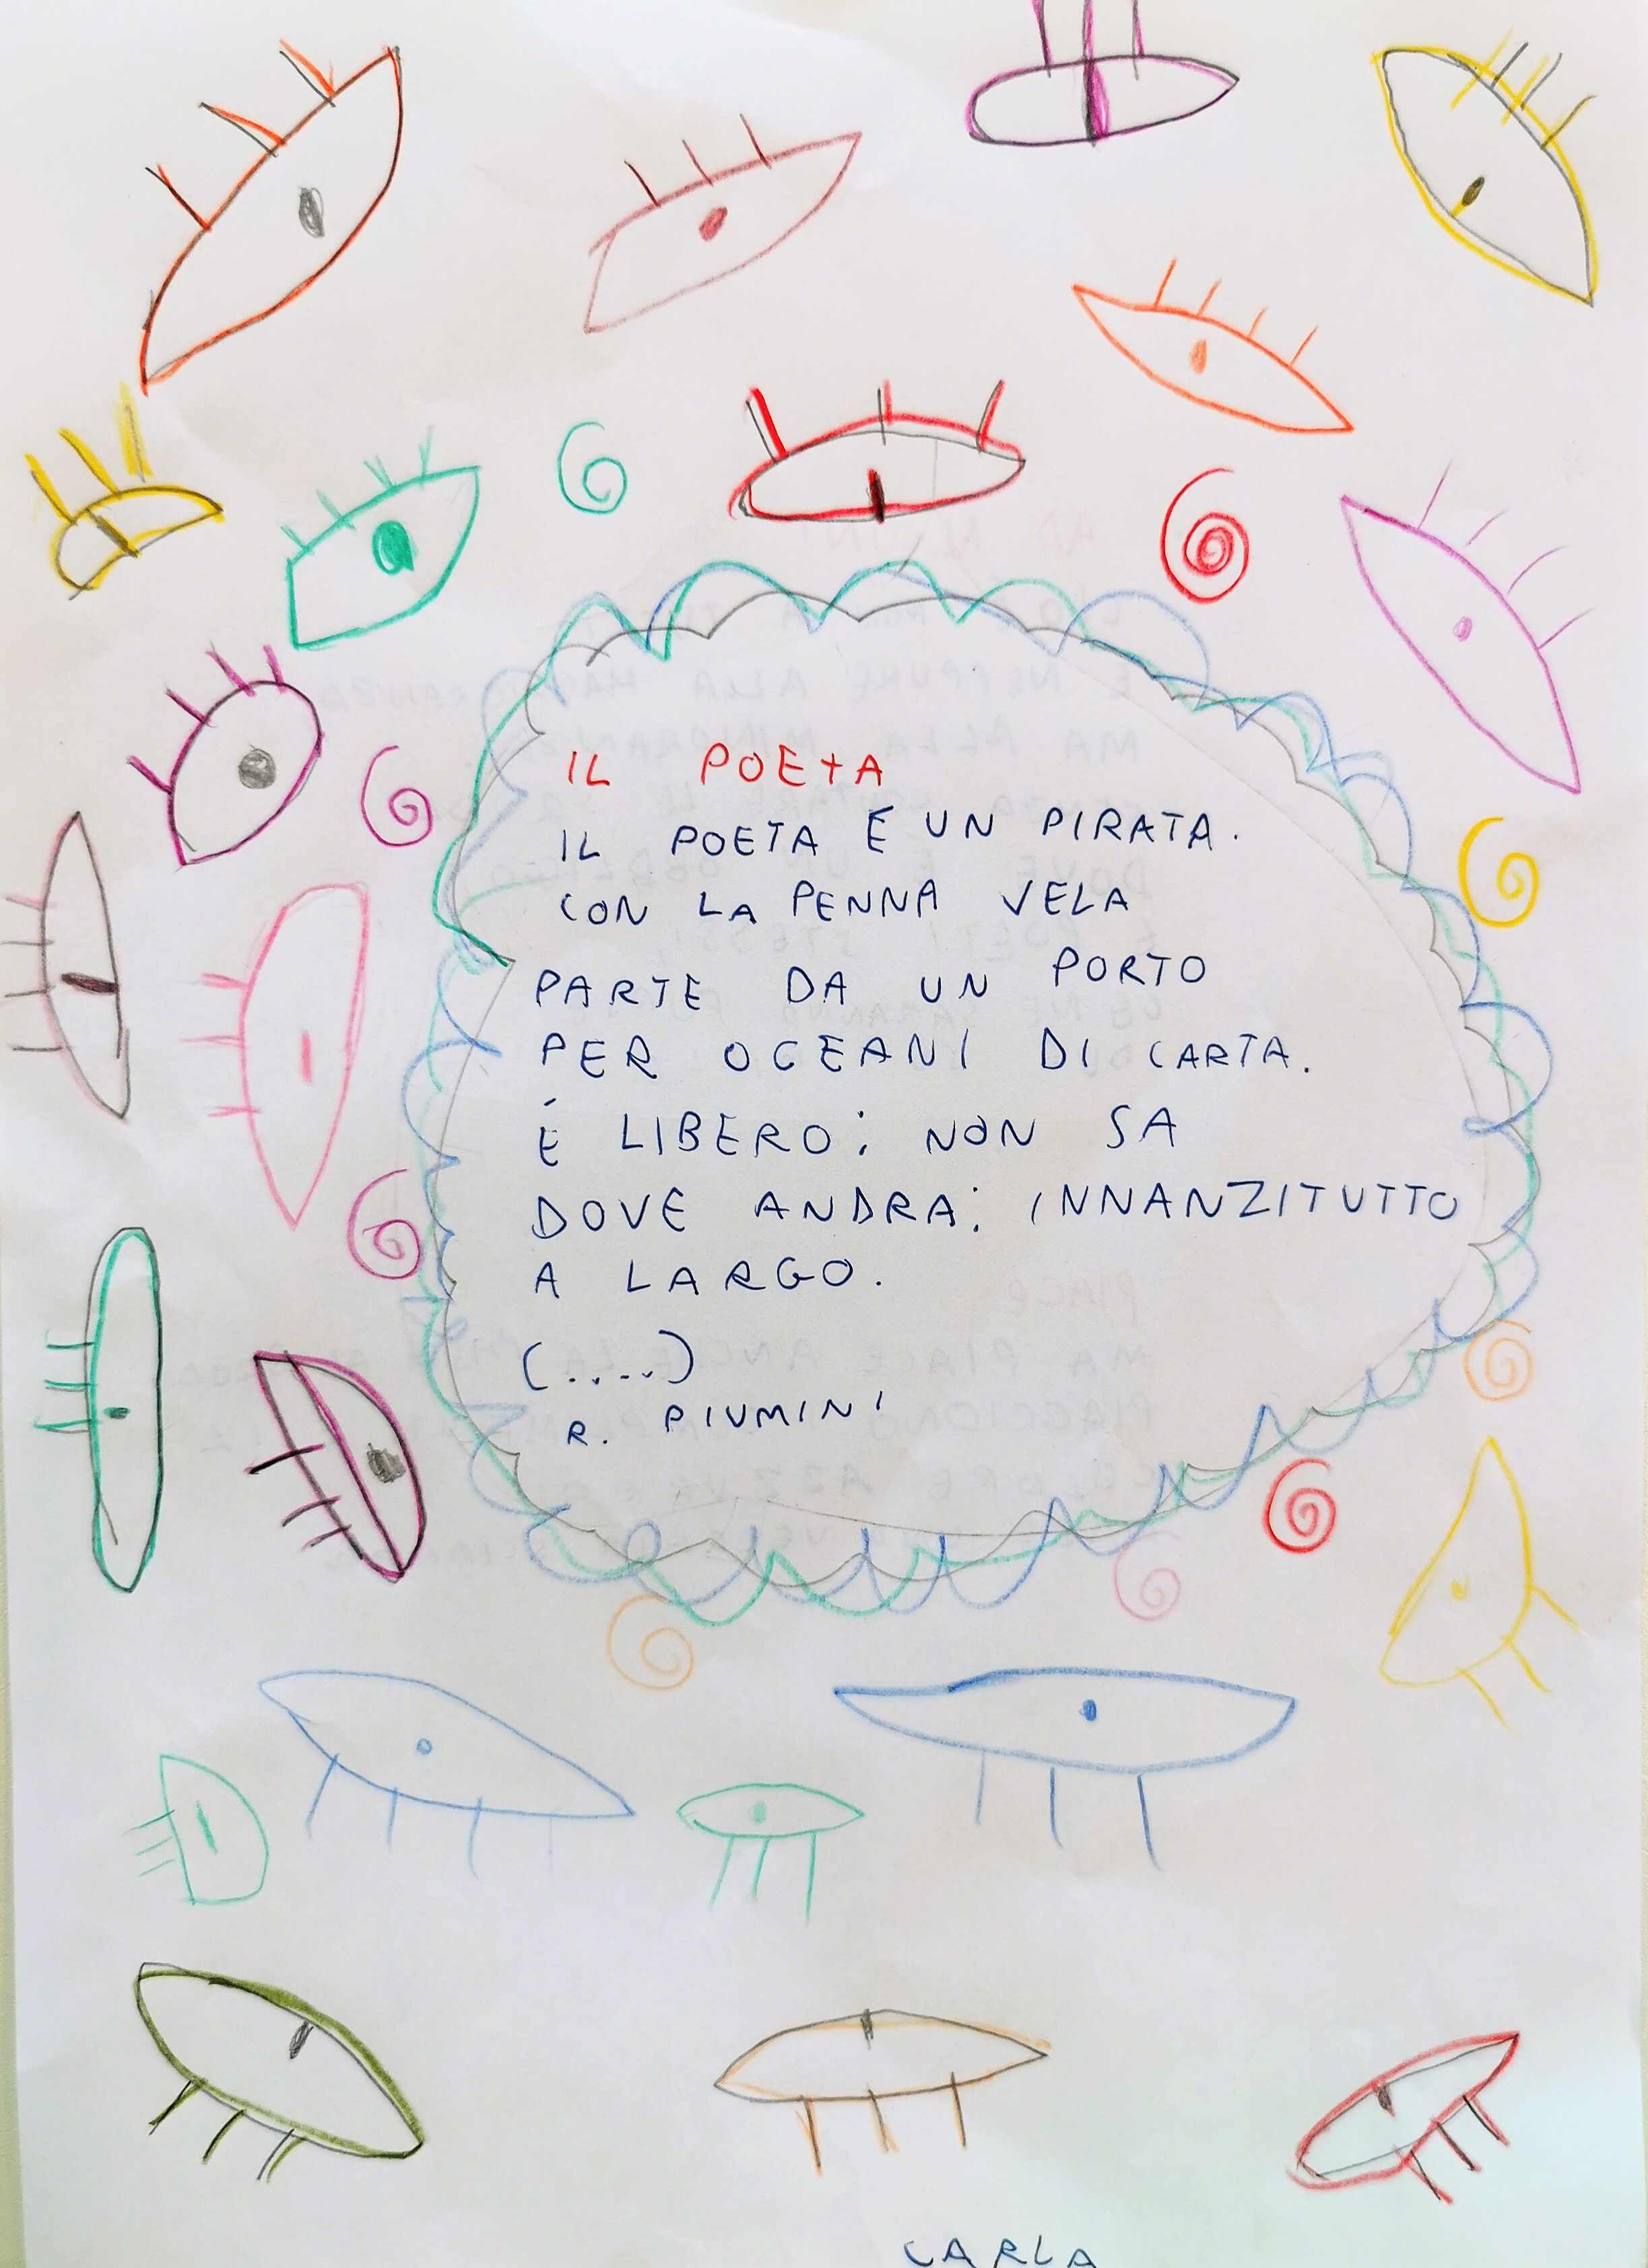 IL POETA
IL POETA È UN PIRATA.
CON LA PENNA VELA
PARTE DA UN PORTO
PER OCEANI DI CARTA.
È LIBERO: NON SA
DOVE ANDRA: INNANZITUTTO
A LARGO.
(....)
R. PIUMINI
CARLA